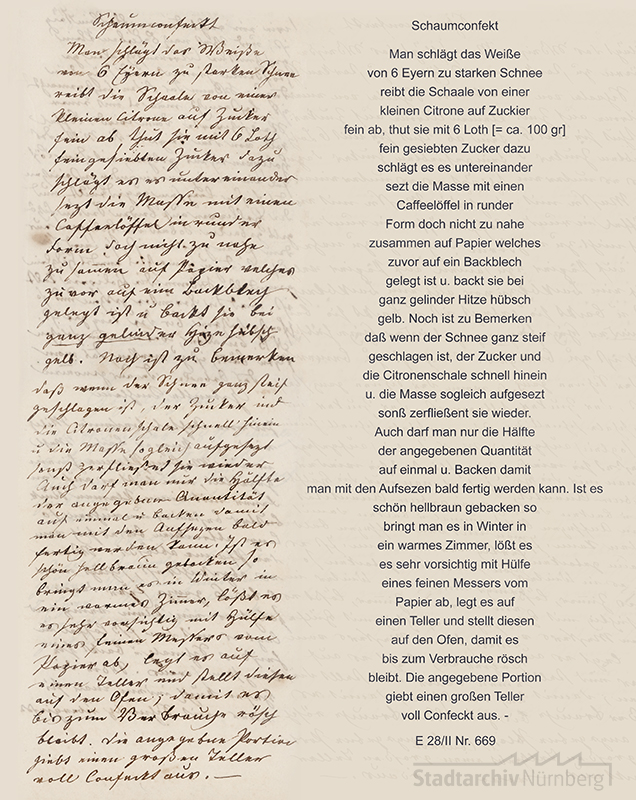 Schaumconfekt
Man schlägt das Weiße
von 6 Eyern zu starken Schnee
reibt die Schaale von einer
kleinen Citrone auf Zucker
fein ab thut sie mit 6 Loth
fein gesiebten Zucker dazu
schlägt es es untereinander
sezt die Masse mit einen
Caffeelöffel in runder
Form doch nicht zu nahe
zusamen auf Papier welches
zuvor auf ein Backblech
gelegt ist u backt sie bei
ganz gelinder Hize hübsch
gelb. Noch ist zu bemerken
daß wenn der Schnee ganz steif
geschlagen ist, der Zucker und
die Citronenschale schnell hinein
u die Masse sogleich aufgesezt
sonst zerfließend sie wieder
Auch darf man nur die Hälfte
der angegebnen Quantität
auf einmal u backen damit
man mit den Aufsezen bald
fertig werden kann. Ist es
schön hellbraun gebacken so
bringt man es in Winter in
ein warmes Zimer, lößt es
es sehr vorsichtig mit Hülfe
eines feinen Messers vom
Papier ab, legt es auf
einen Teller und stellt diesen
auf den Ofen, damit es
bis zum Verbrauche rösch
bleibt. Die angegebne Portion
giebt einen großen Teller
voll Confeckt aus. —
Schaumconfekt
Man schlägt das Weiße
von 6 Eyern zu starken Schnee
reibt die Schaale von einer
kleinen Citrone auf Zuckier
fein ab, thut sie mit 6 Loth [= ca. 100 gr]
fein gesiebten Zucker dazu
schlägt es es untereinander
sezt die Masse mit einen
Caffeelöffel in runder
Form doch nicht zu nahe
zusammen auf Papier welches
zuvor auf ein Backblech
gelegt ist u. backt sie bei
ganz gelinder Hitze hübsch
gelb. Noch ist zu Bemerken
daß wenn der Schnee ganz steif
geschlagen ist, der Zucker und
die Citronenschale schnell hinein
u. die Masse sogleich aufgesezt
sonß zerfließent sie wieder.
Auch darf man nur die Hälfte
der angegebenen Quantität
auf einmal u. Backen damit
man mit den Aufsezen bald fertig werden kann. Ist es
schön hellbraun gebacken so
bringt man es in Winter in
ein warmes Zimmer, lößt es
es sehr vorsichtig mit Hülfe
eines feinen Messers vom
Papier ab, legt es auf
einen Teller und stellt diesen
auf den Ofen, damit es
bis zum Verbrauche rösch
bleibt. Die angegebene Portion
giebt einen großen Teller
voll Confeckt aus. -
E 28/II Nr. 669
Stadtarchiv Nürnberg